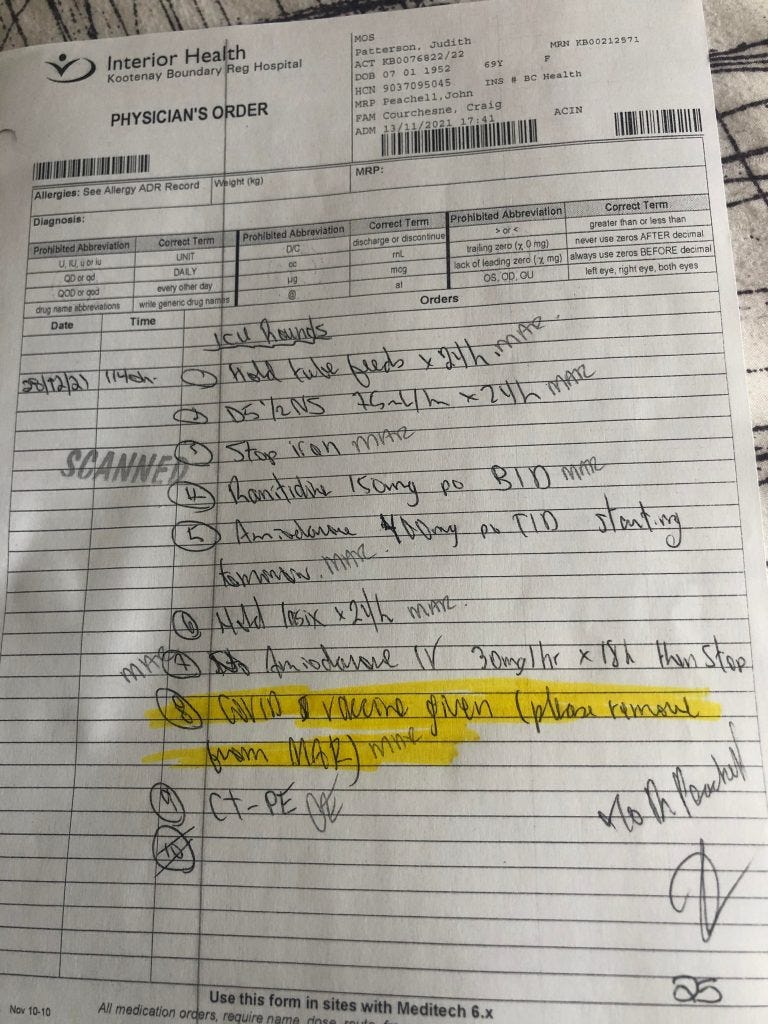 Interior Health
Kootenay Boundary Reg Hospital
PHYSICIAN'S ORDER
MOS
Patterson, Judith MRN KB00212571
ACT KB0076822/22 69Y F
DOB 07 01 1952
HCN 9037095045 INS # BC Health
MRP Peachell,John
FAM Courchesne, Craig
ADM 13/11/2021 17:41 ACIN
Allergies: See Allergy ADR Record Weight (kg) MRP:
Diagnosis:
Prohibited Abbreviation Correct Term Prohibited Abbreviation Correct Term Prohibited Abbreviation Correct Term
U, IU, u or iu UNIT D/C discharge or discontinue > or < greater than or less than
QD or qd DAILY cc mL trailing zero (χ.0 mg) never use zeros AFTER decimal
QOD or qod every other day µg mcg lack of leading zero (.χ mg) always use zeros BEFORE decimal
drug name abbreviations write generic drug names @ at OS, OD, OU left eye, right eye, both eyes
Date Time Orders
ICU Rounds
1140h. 1 Hold tube feeds x 24h. MAR.
2 D5 1/2NS 75mL/h x 24h MAR
3 Stop iron MAR
SCANNED
4 Ranitidine 150mg po BID MAR
5 Amiodarone 400mg po TID starting
tomorrow. MAR.
6 Hold lasix x 24h MAR.
MAR 7 Amiodarone IV 30mg/hr x 18h then Stop
8 COVID vaccine given (please remove
from MAR) MAR
9 CT-PE
10
Dr Peachell
25
Use this form in sites with Meditech 6.x
Nov 10-10 All medication orders, require name, dose, route,